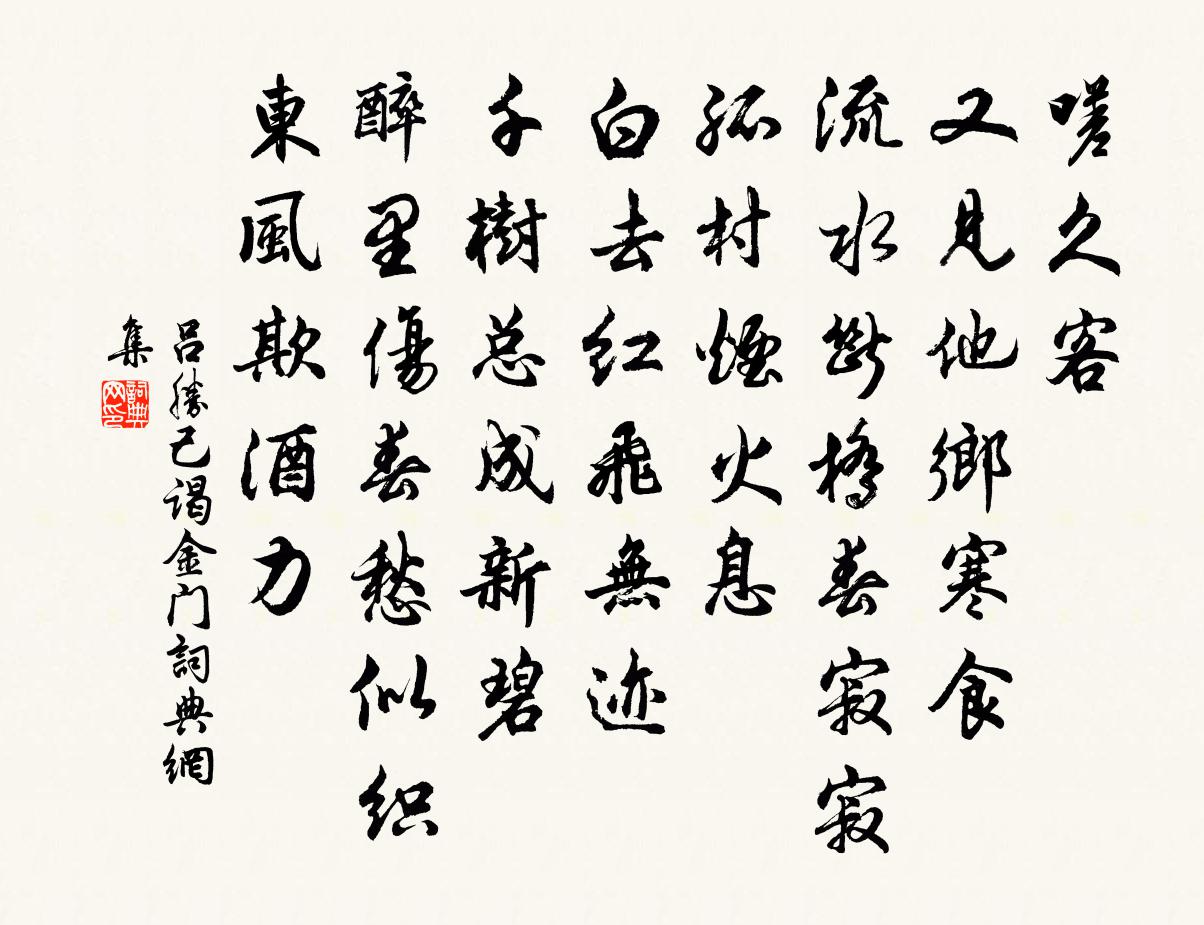 嗟久客
又見他鄉寒食
流水斷橋春寂寂
孤村煙火息
白去红飛無迹
千樹总成新碧
醉里傷春愁似织
東風欺酒力
吕勝己谒金门詞典網
集
詞典
网印